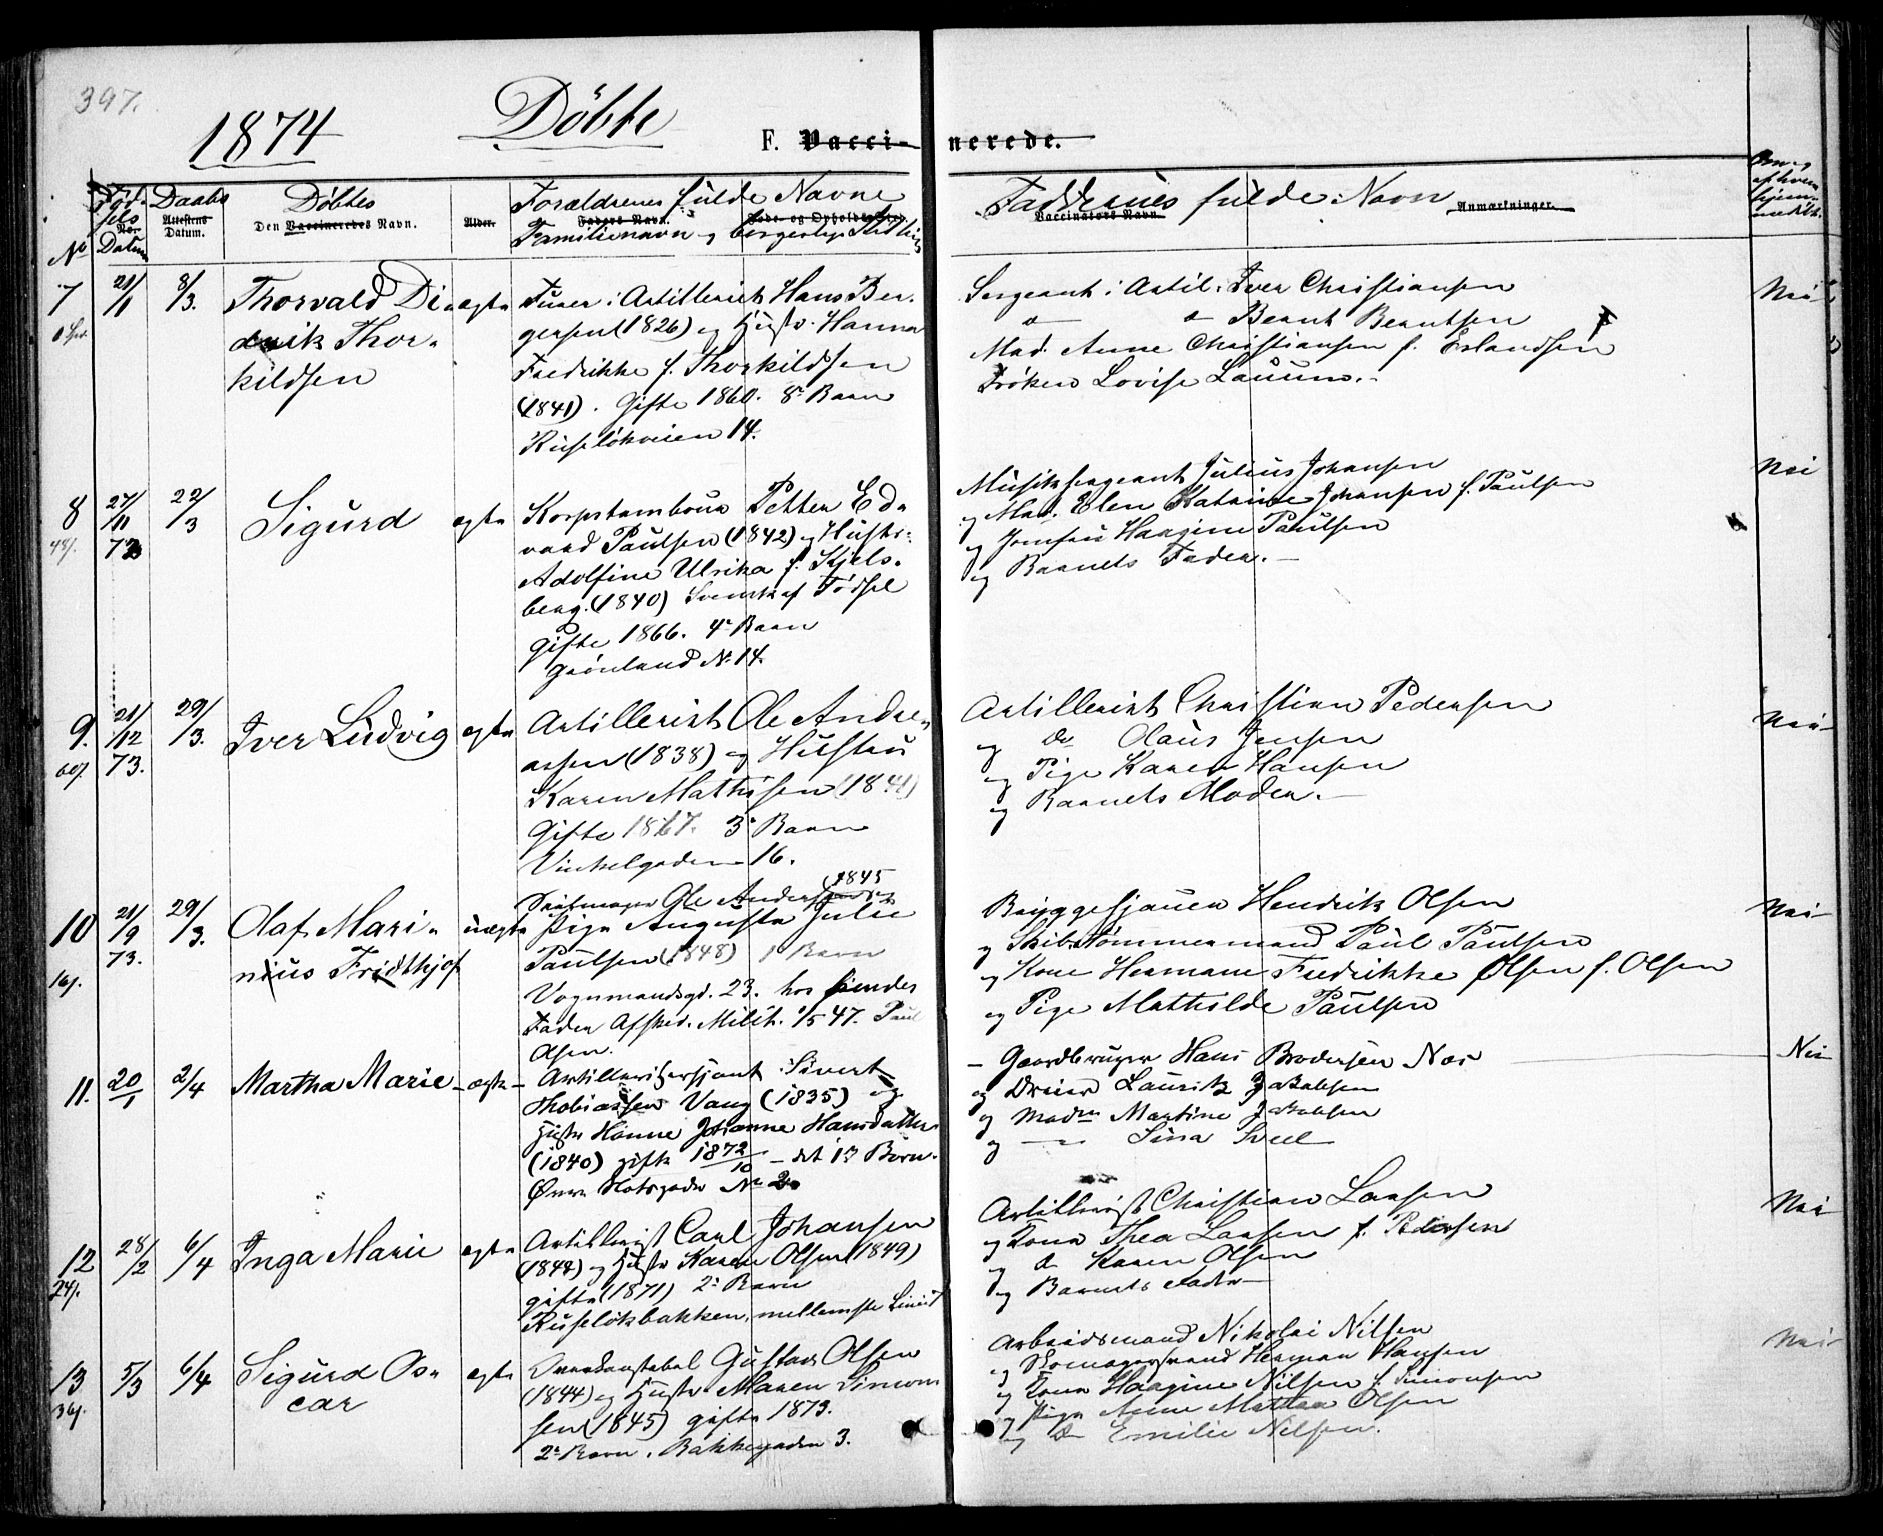 397.
1874 Döbte
F. Vacci- nerede.
Föd-
sels
Datum
Daabs
Attestens
Datum.
Döbtes
Den Vaccineredes Navn.
Alder.
Forældrenes fulde Navne
Faders Navn.
Familienavn og borgerlige Stilling
Faddernes fulde Navn
Vaccinators Navn.
Anmærkninger.
Om og
af hvem
hjem-
medöbt.
No
7 21/1 8/3. Thorvald Di- ægte
drik Thor-
kildsen
Furer i Artilleriet Hans Ber-
gersen (1826) og Hustr. Hanna
Fredrikke f. Thorkildsen
(1841). Gifte 1860. 8de Barn
Ruselökveien 14.
Sergeant i Artil. Iver Christiansen
Bernt Berntsen
Mad. Anne Christiansen f. Erlandsen
Fröken Lovise Lauum.
Nei
8 27/11 73 22/3 Sigurd ægte
Korpstambour Petter Ed-
vard Paulsen (1842) og Hustr.
Adolfine Ulrika f. Kjels-
berg. (1840) Svensk af Födsel
Gifte 1866. 4de Barn
Grönland No 14.
Musiksergeant Julius Johansen
og Mad. Elen Katrine Johansen f. Paulsen
og Jomfru Hargine Paulsen
og Barnets Fader.
Nei
9. 21/12 73. 29/3. Iver Ludvig ægte
Artillerist Ole Andre-
assen (1838) og Hustru
Karen Mathisen (1841)
Gifte 1867. 3de Barn
Vinkelgaden 16.
Artillerist Christian Pedersen
og do Olaus Jensen
og Pige Karen Hansen
og Barnets Moder.
Nei
10 21/9 73. 29/3. Olaf Mari- uægte
nius Fridthjof
Ole Andersen 1845
Pige Augusta Julie
Paulsen (1848) 1 Barn
Vognmandsgd. 23. hos hendes
Fader Afsked. Milit. 1/5 47. Paul
Olsen.
Bryggesjauer Hendrik Olsen
og Skibstömmermand Paul Paulsen
og Kone Hermane Fredrikke Olsen f. Olsen
og Pige Mathilde Paulsen
Nei
11. 20/1 2/4 Martha Marie - ægte -
Artillerisersjant Sivert
Thobiassen Vang (1835) og
Hustr Hanne Johanne Hansdatter
(1840) gift 1872/10 - det 13 Barn.
Övre Slotsgade No 2
- Gaardbruger Hans Brodersen Næs
og Dreier Lauritz Jakobsen
og Madm Martine Jakobsen
og Lina
Nei
12 28/2 6/4 Inga Marie ægte
24/.
Artillerist Carl Johansen
(1844) og Hustr Karen Olsen (1849)
gifte (1871) 2de Barn
Ruselökbakken, mellemste Linie
Artillerist Christian Larsen
og Kone Thea Larsen f. Pedersen
og do Karen Olsen
og Barnets Fader
Nei
13 5/3 6/4 Sigurd Os- ægte
car
36/.
Overkonstabel Gustav Olsen
(1844) og Hustr Maren Simon-
sen (1845) gifte 1873.
2de Barn. Bakkegaden 3.
Arbeidsmand Nikolai Nilsen
og Skomagersvend Herman Hansen
og Kone Hargine Nilsen f. Simonsen
og Pige Anne Mathea Olsen
og Do Emilie Nilsen.
Nei